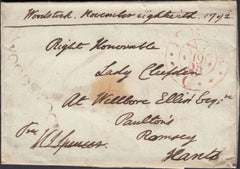 Woodstock November eighteenth 1792
Right Honorable
Lady Clifden
At Wellbore Ellis Esqre
Paulton's
Romsey
Hants
Free